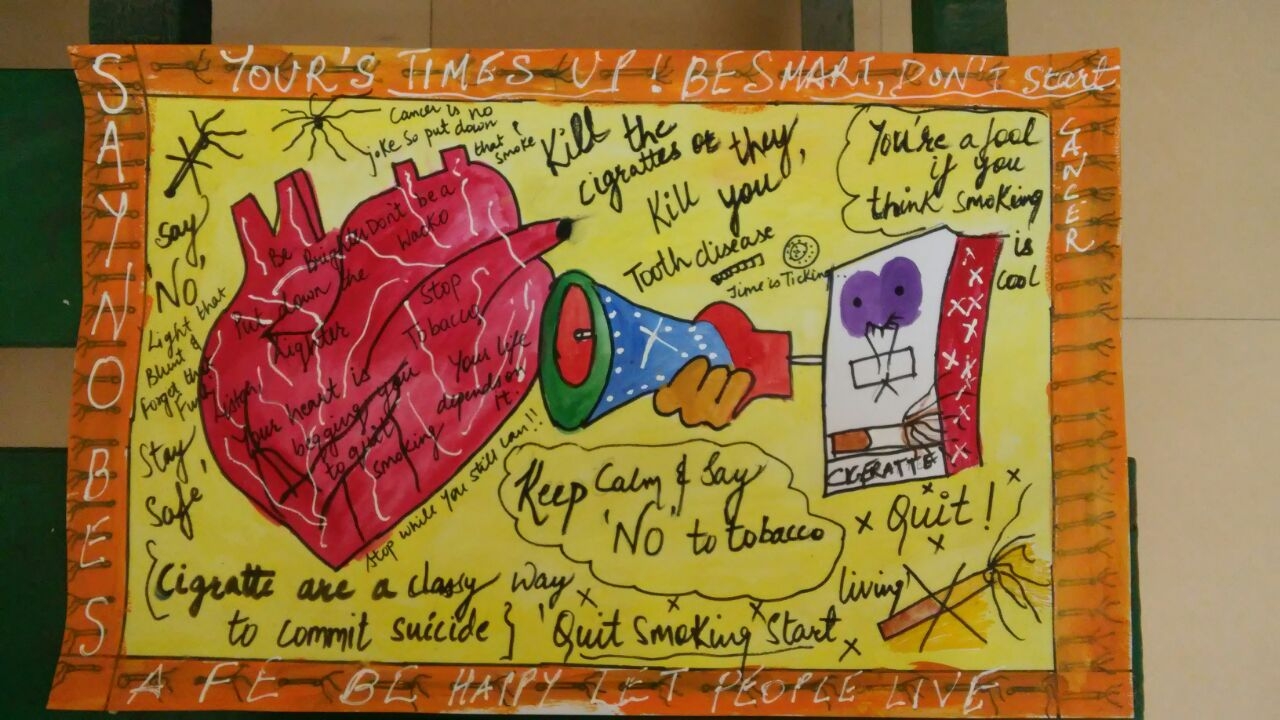 YOUR'S TIMES UP! BE SMART, DON'T Start
CANCER
SAY NO BE S
A F E BE HAPPY LET PEOPLE LIVE
Cancer is no
joke so put down
that smoke
Kill the
cigrattes or they,
Kill you
You're a fool
if you
think smoking
is
cool
Tooth disease
Time is Ticking
Say
'NO,
Light that
Blunt &
Forget that
Stay
Safe
Be Brighter
Put down the
Lighter
Don't be a
Wacko
Stop
Tobacco
Listen,
Your heart is
begging you
to quit
smoking
Your life
depends on
it.
Stop while you still can!!
CIGERATTE
Keep Calm & Say
'NO' to tobacco
Quit!
{Cigratte are a classy way
to commit suicide}
'Quit Smoking Start
living'